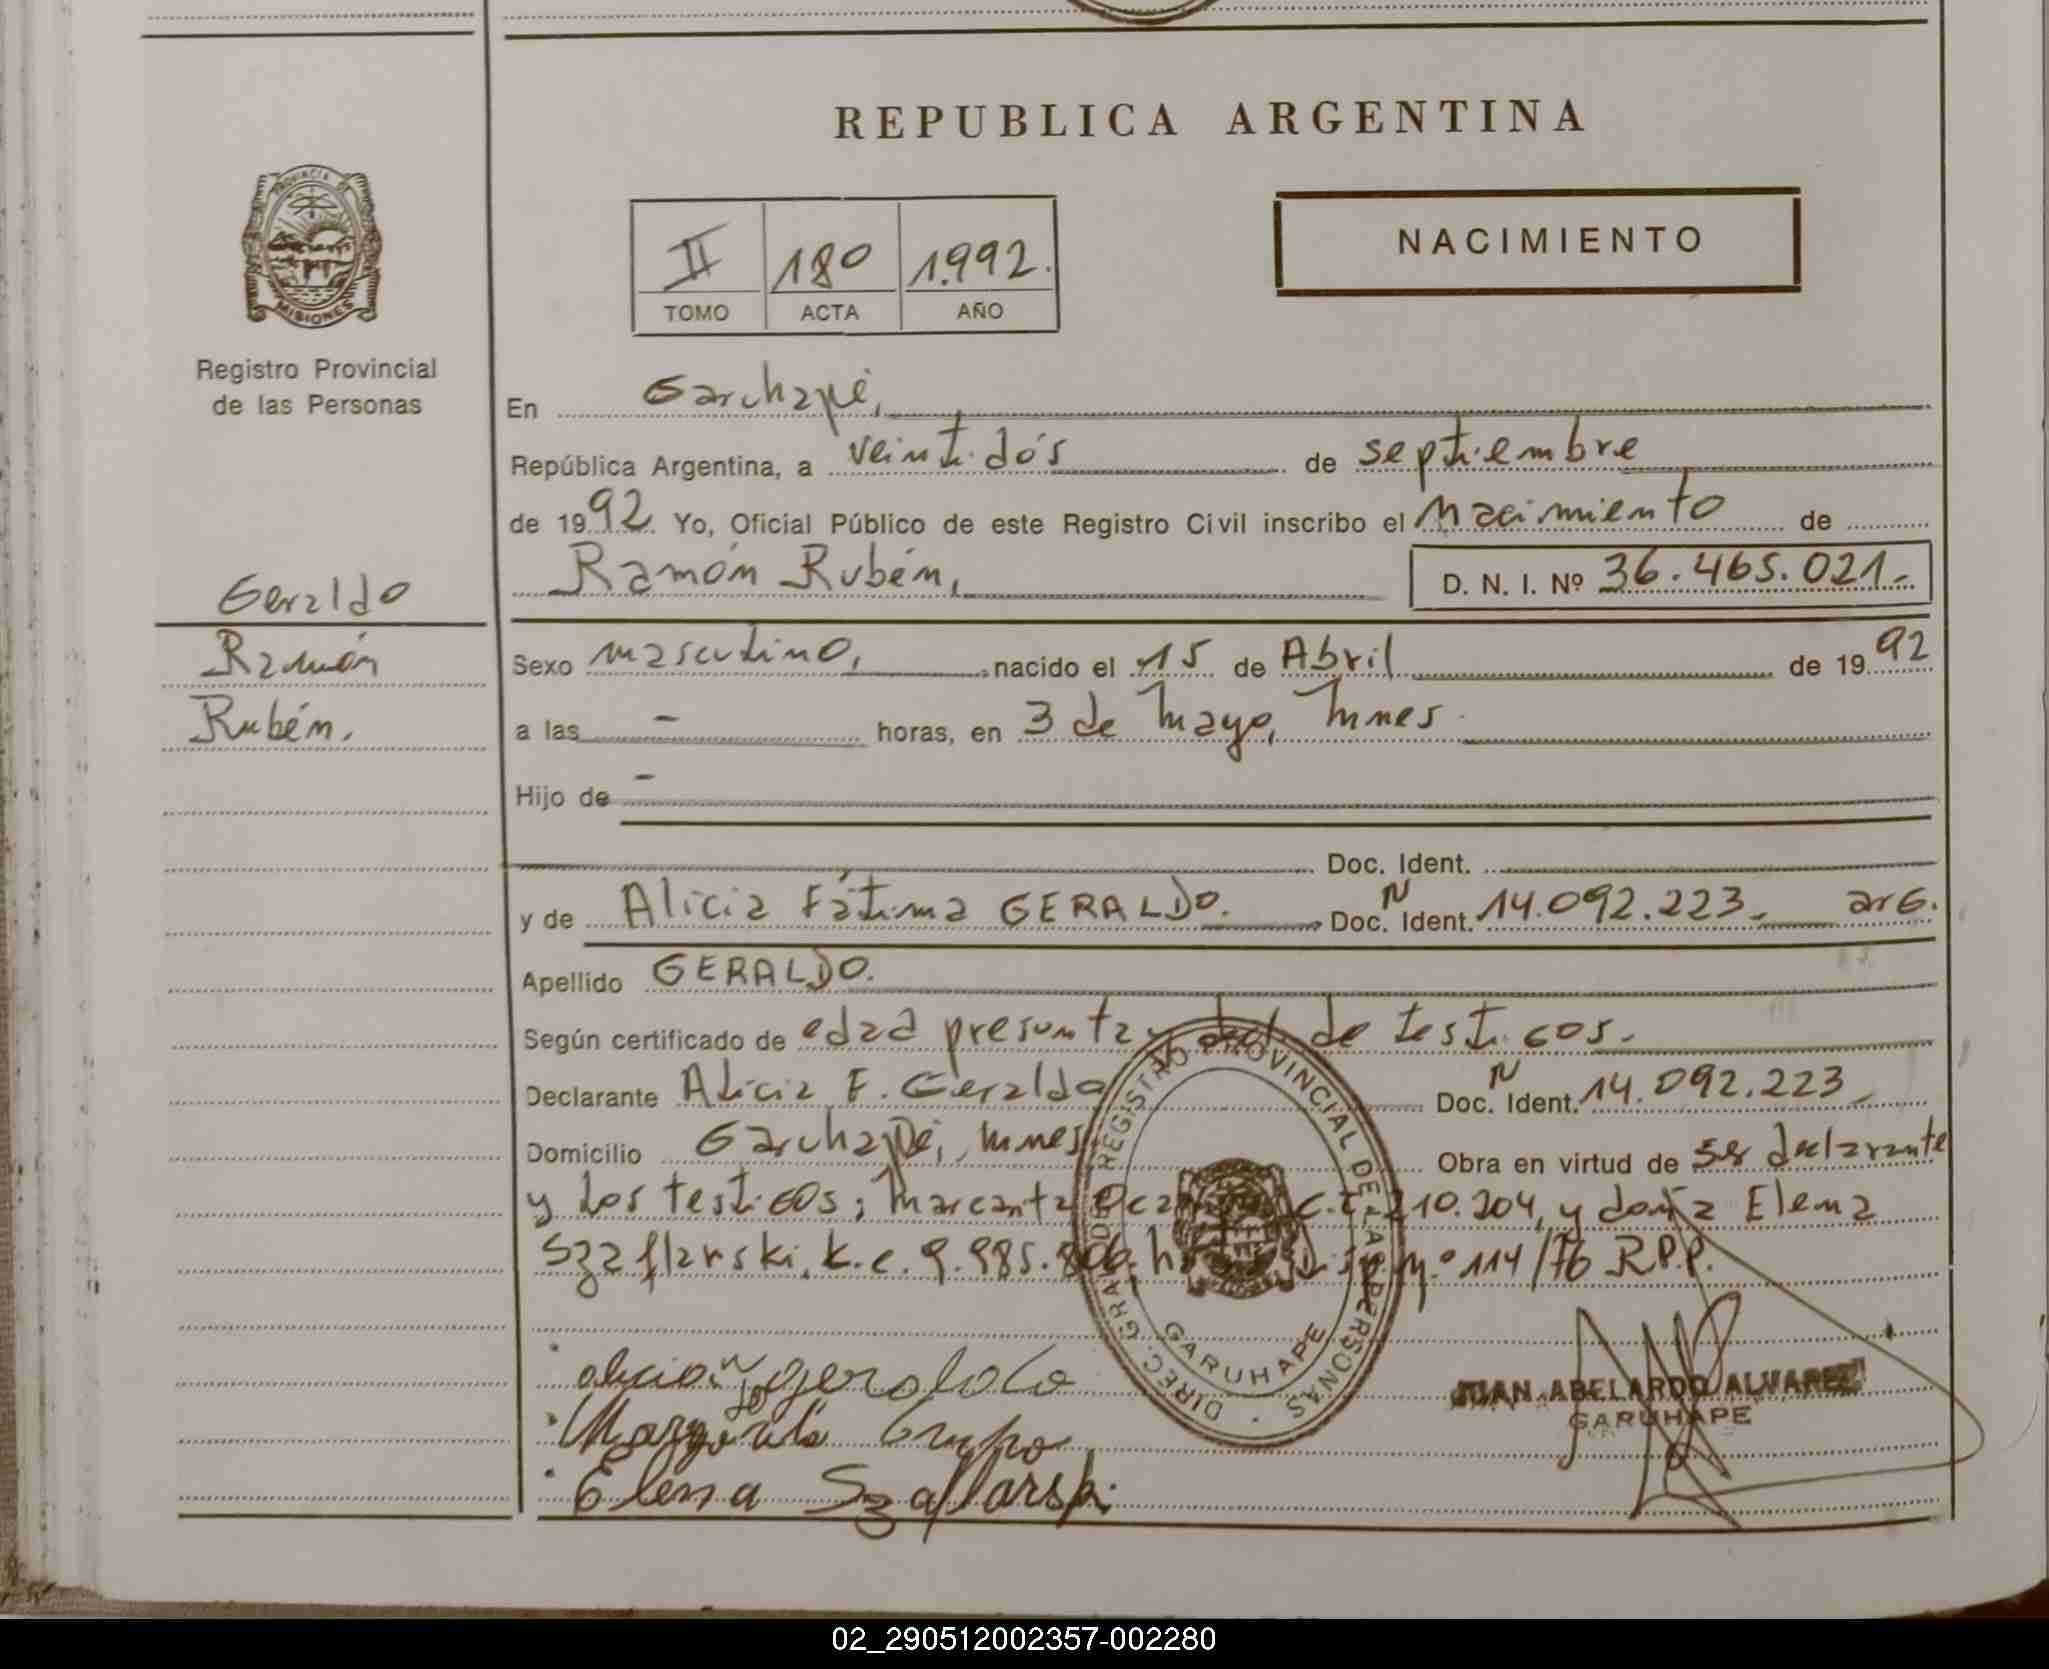 REPUBLICA ARGENTINA
PROVINCIA DE MISIONES
Registro Provincial
de las Personas
II 180 1.992.
TOMO ACTA AÑO
NACIMIENTO
En Garuhapé,
República Argentina, a veintidós de septiembre
de 1992. Yo, Oficial Público de este Registro Civil inscribo el Nacimiento de
Ramón Rubén, D. N. I. Nº 36.465.021.-
Geraldo
Ramón
Rubén.
Sexo masculino, nacido el 15 de Abril de 1992
a las - horas, en 3 de Mayo, Mnes.
Hijo de -
Doc. Ident.
y de Alicia Fátima GERALDO. Doc. N Ident. 14.092.223.- arg.
Apellido GERALDO.
Según certificado de edad presunta y de testigos.
Declarante Alicia F. Geraldo Doc. N Ident. 14.092.223
Domicilio Garuhapé, Mnes Obra en virtud de ser declarante
y los testigos; c.i. 210.204, y doña Elena
Szaflarski, L.c. 9.985.806. n.º 114/76 R.P.P.
geraldo
Elena Szaflarski
DIREC. GRAL. DE REGISTRO PROVINCIAL DE LAS PERSONAS
GARUHAPE
JUAN ABELARDO ALVAREZ
GARUHAPE
02_290512002357-002280